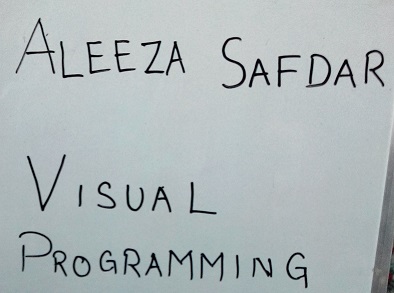 ALEEZA SAFDAR
VISUAL
PROGRAMMING